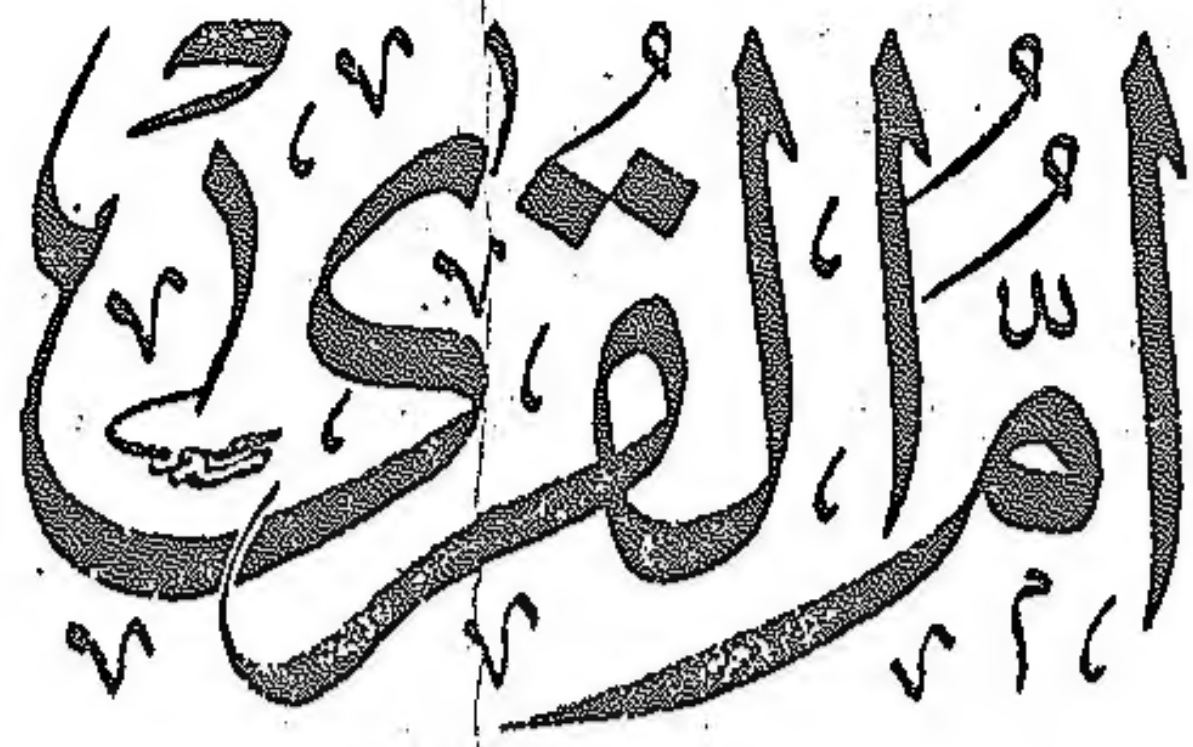 اُمُّ الْقُرٰى